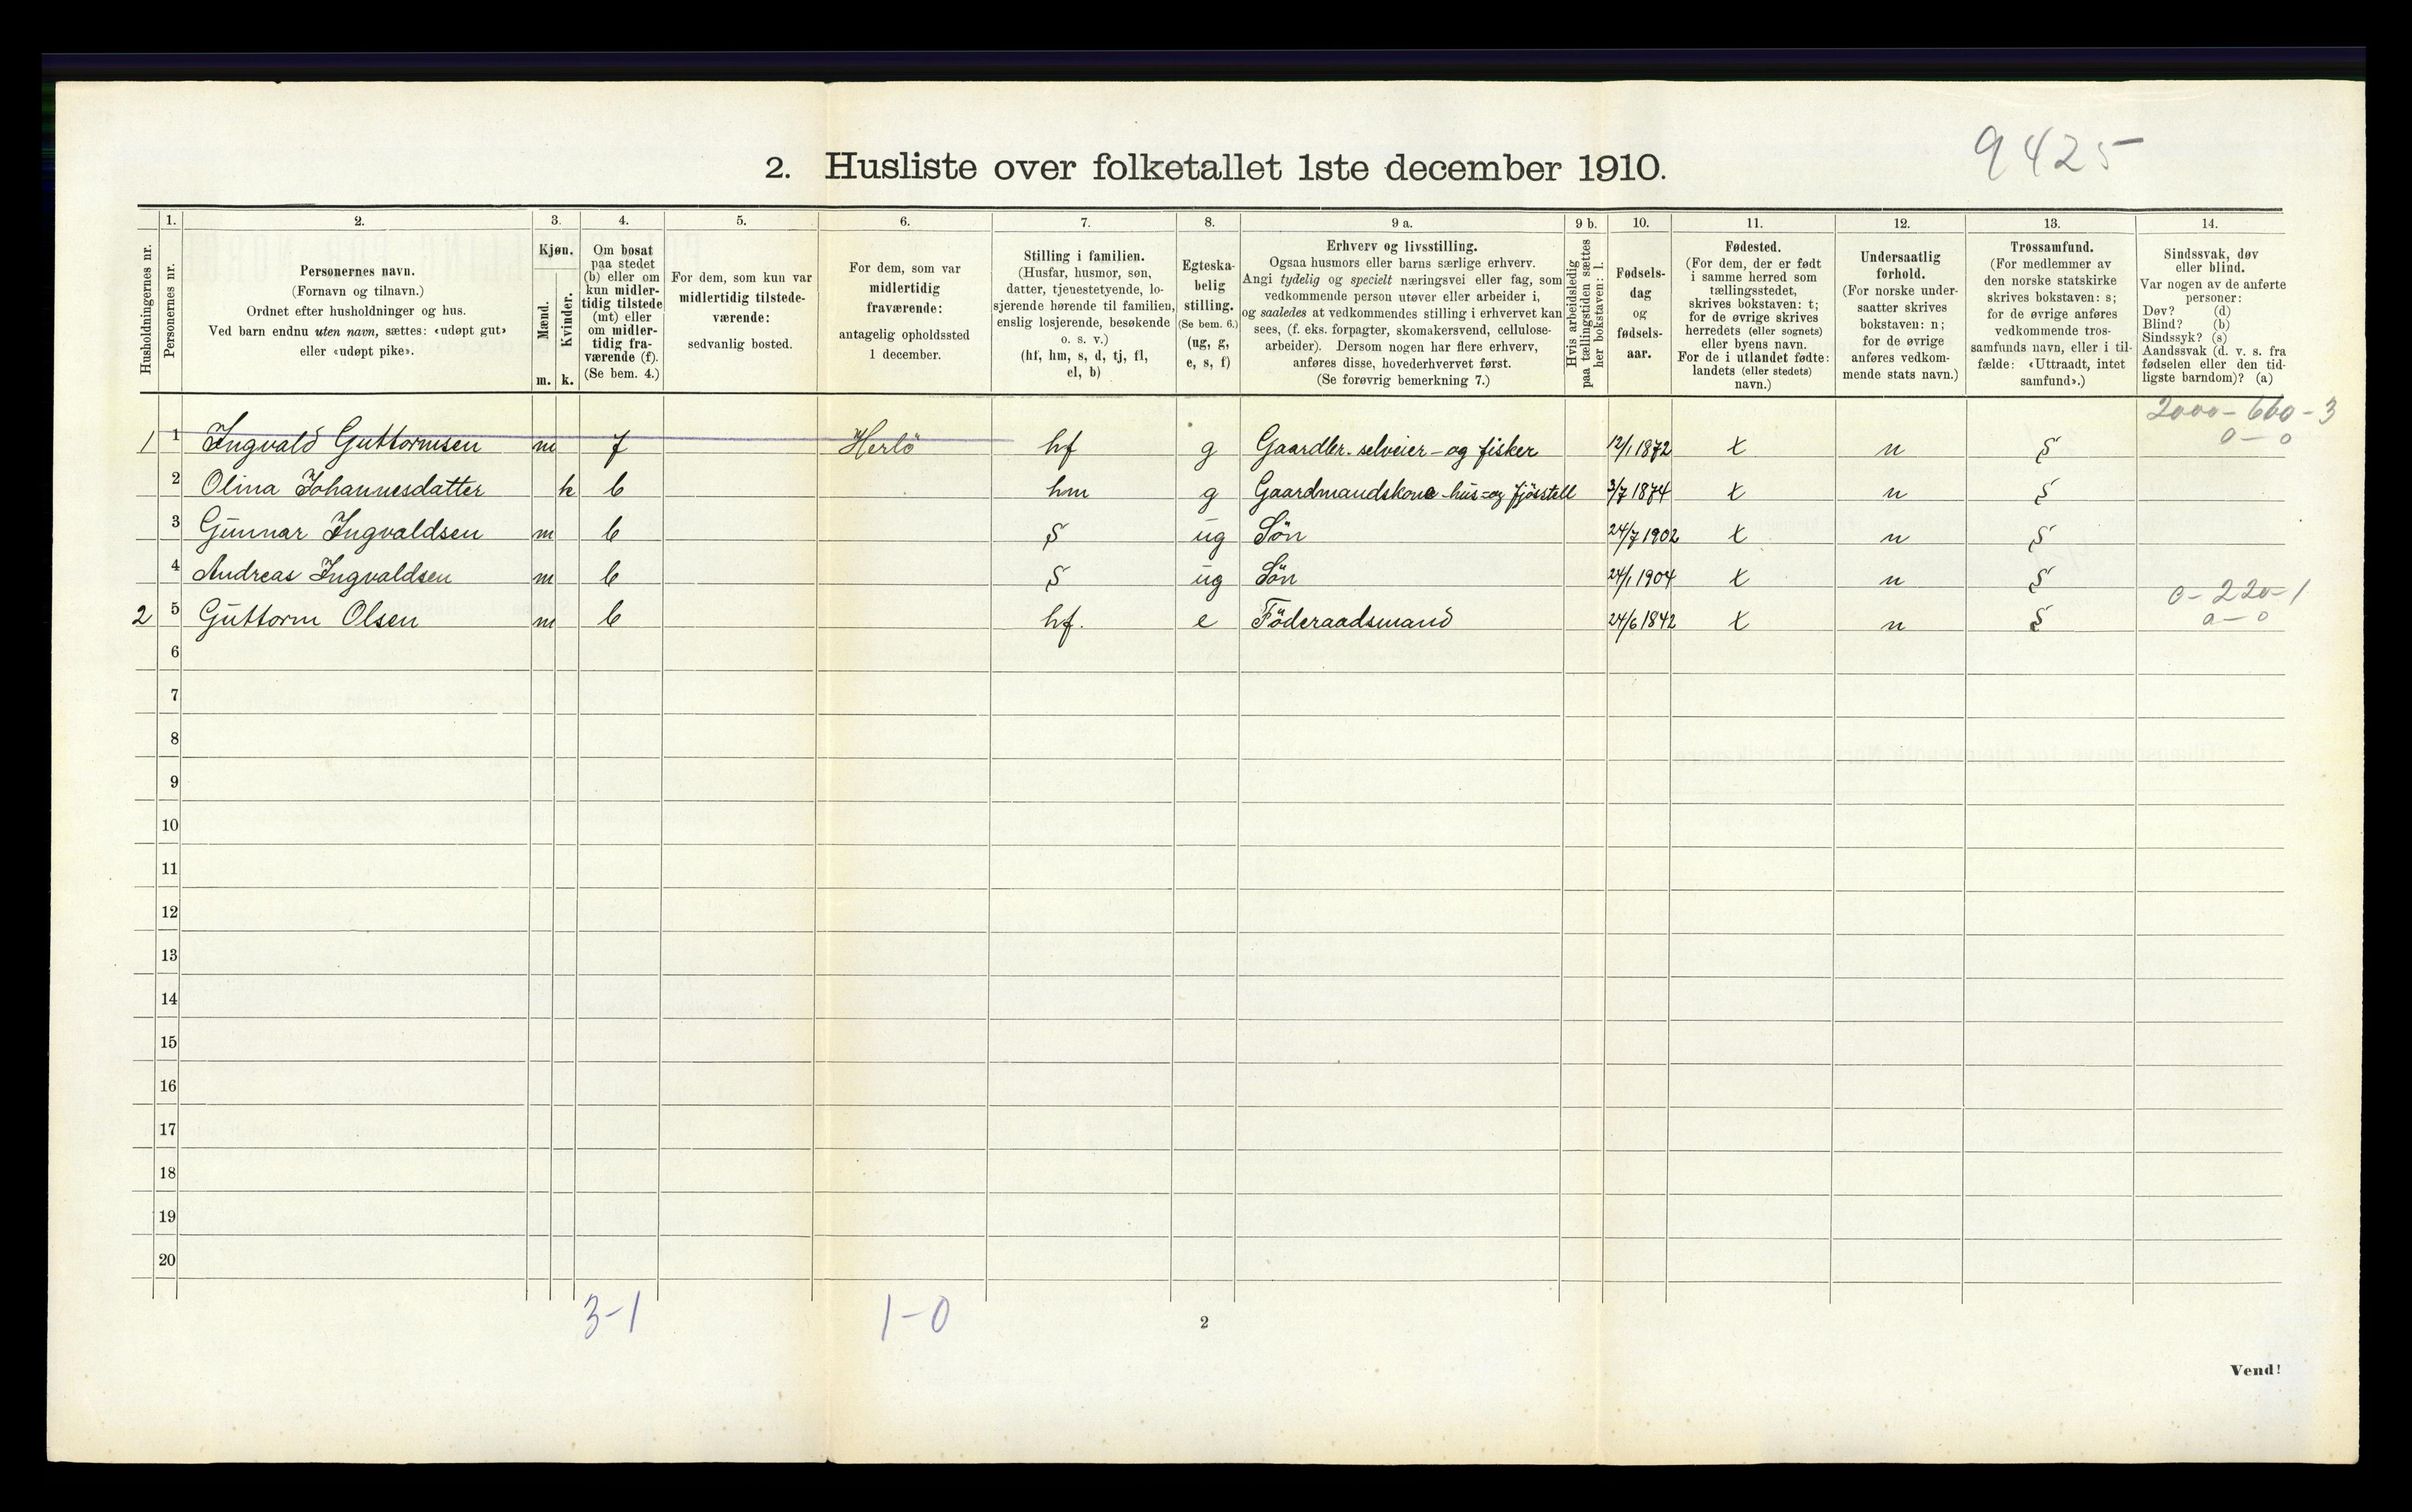 9425
2. Husliste over folketallet 1ste december 1910.
Husholdningernes nr.
1.
Personernes nr.
2.
Personernes navn.
(Fornavn og tilnavn.)
Ordnet efter husholdninger og hus.
Ved barn endnu uten navn, sættes: «udøpt gut»
eller «udøpt pike».
3.
Kjøn.
Mænd.
Kvinder.
m. k.
4.
Om bosat
paa stedet
(b) eller om
kun midler-
tidig tilstede
(mt) eller
om midler-
tidig fra-
værende (f).
(Se bem. 4.)
5.
For dem, som kun var
midlertidig tilstede-
værende:
sedvanlig bosted.
6.
For dem, som var
midlertidig
fraværende:
antagelig opholdssted
1 december.
7.
Stilling i familien.
(Husfar, husmor, søn,
datter, tjenestetyende, lo-
sjerende hørende til familien,
enslig losjerende, besøkende
o. s. v.)
(hf, hm, s, d, tj, fl,
el, b)
8.
Egteska-
belig
stilling.
(Se bem. 6.)
(ug, g,
e, s, f)
9 a.
Erhverv og livsstilling.
Ogsaa husmors eller barns særlige erhverv.
Angi tydelig og specielt næringsvei eller fag, som
vedkommende person utøver eller arbeider i,
og saaledes at vedkommendes stilling i erhvervet kan
sees, (f. eks. forpagter, skomakersvend, cellulose-
arbeider). Dersom nogen har flere erhverv,
anføres disse, hovederhvervet først.
(Se forøvrig bemerkning 7.)
9 b.
Hvis arbeidsledig
paa tællingstiden sættes
her bokstaven: l.
10.
Fødsels-
dag
og
fødsels-
aar.
11.
Fødested.
(For dem, der er født
i samme herred som
tællingsstedet,
skrives bokstaven: t;
for de øvrige skrives
herredets (eller sognets)
eller byens navn.
For de i utlandet fødte:
landets (eller stedets)
navn.)
12.
Undersaatlig
forhold.
(For norske under-
saatter skrives
bokstaven: n;
for de øvrige
anføres vedkom-
mende stats navn.)
13.
Trossamfund.
(For medlemmer av
den norske statskirke
skrives bokstaven: s;
for de øvrige anføres
vedkommende tros-
samfunds navn, eller i til-
fælde: «Uttraadt, intet
samfund».)
14.
Sindssvak, døv
eller blind.
Var nogen av de anførte
personer:
Døv? (d)
Blind? (b)
Sindssyk? (s)
Aandssvak (d. v. s. fra
fødselen eller den tid-
ligste barndom)? (a)
2000-660-3
0-0
1 1 Ingvald Guttormsen m f Herlö hf g Gaardbr. selveier- og fisker 12/1 1872 t n s
2 Olina Johannesdatter k b hm g Gaardmandskone -hus- og fjösstell 3/7 1874 t n s
3 Gunnar Ingvaldsen m b s ug Sön 24/7 1902 t n s
4 Andreas Ingvaldsen m b s ug Sön 24/1 1904 t n s
0-220-1
0-0
2 5 Guttorm Olsen m b hf. e Föderaadsmand 24/6 1842 t n s
6
7
8
9
10
11
12
13
14
15
16
17
18
19
20
3-1 1-0
2
Vend!